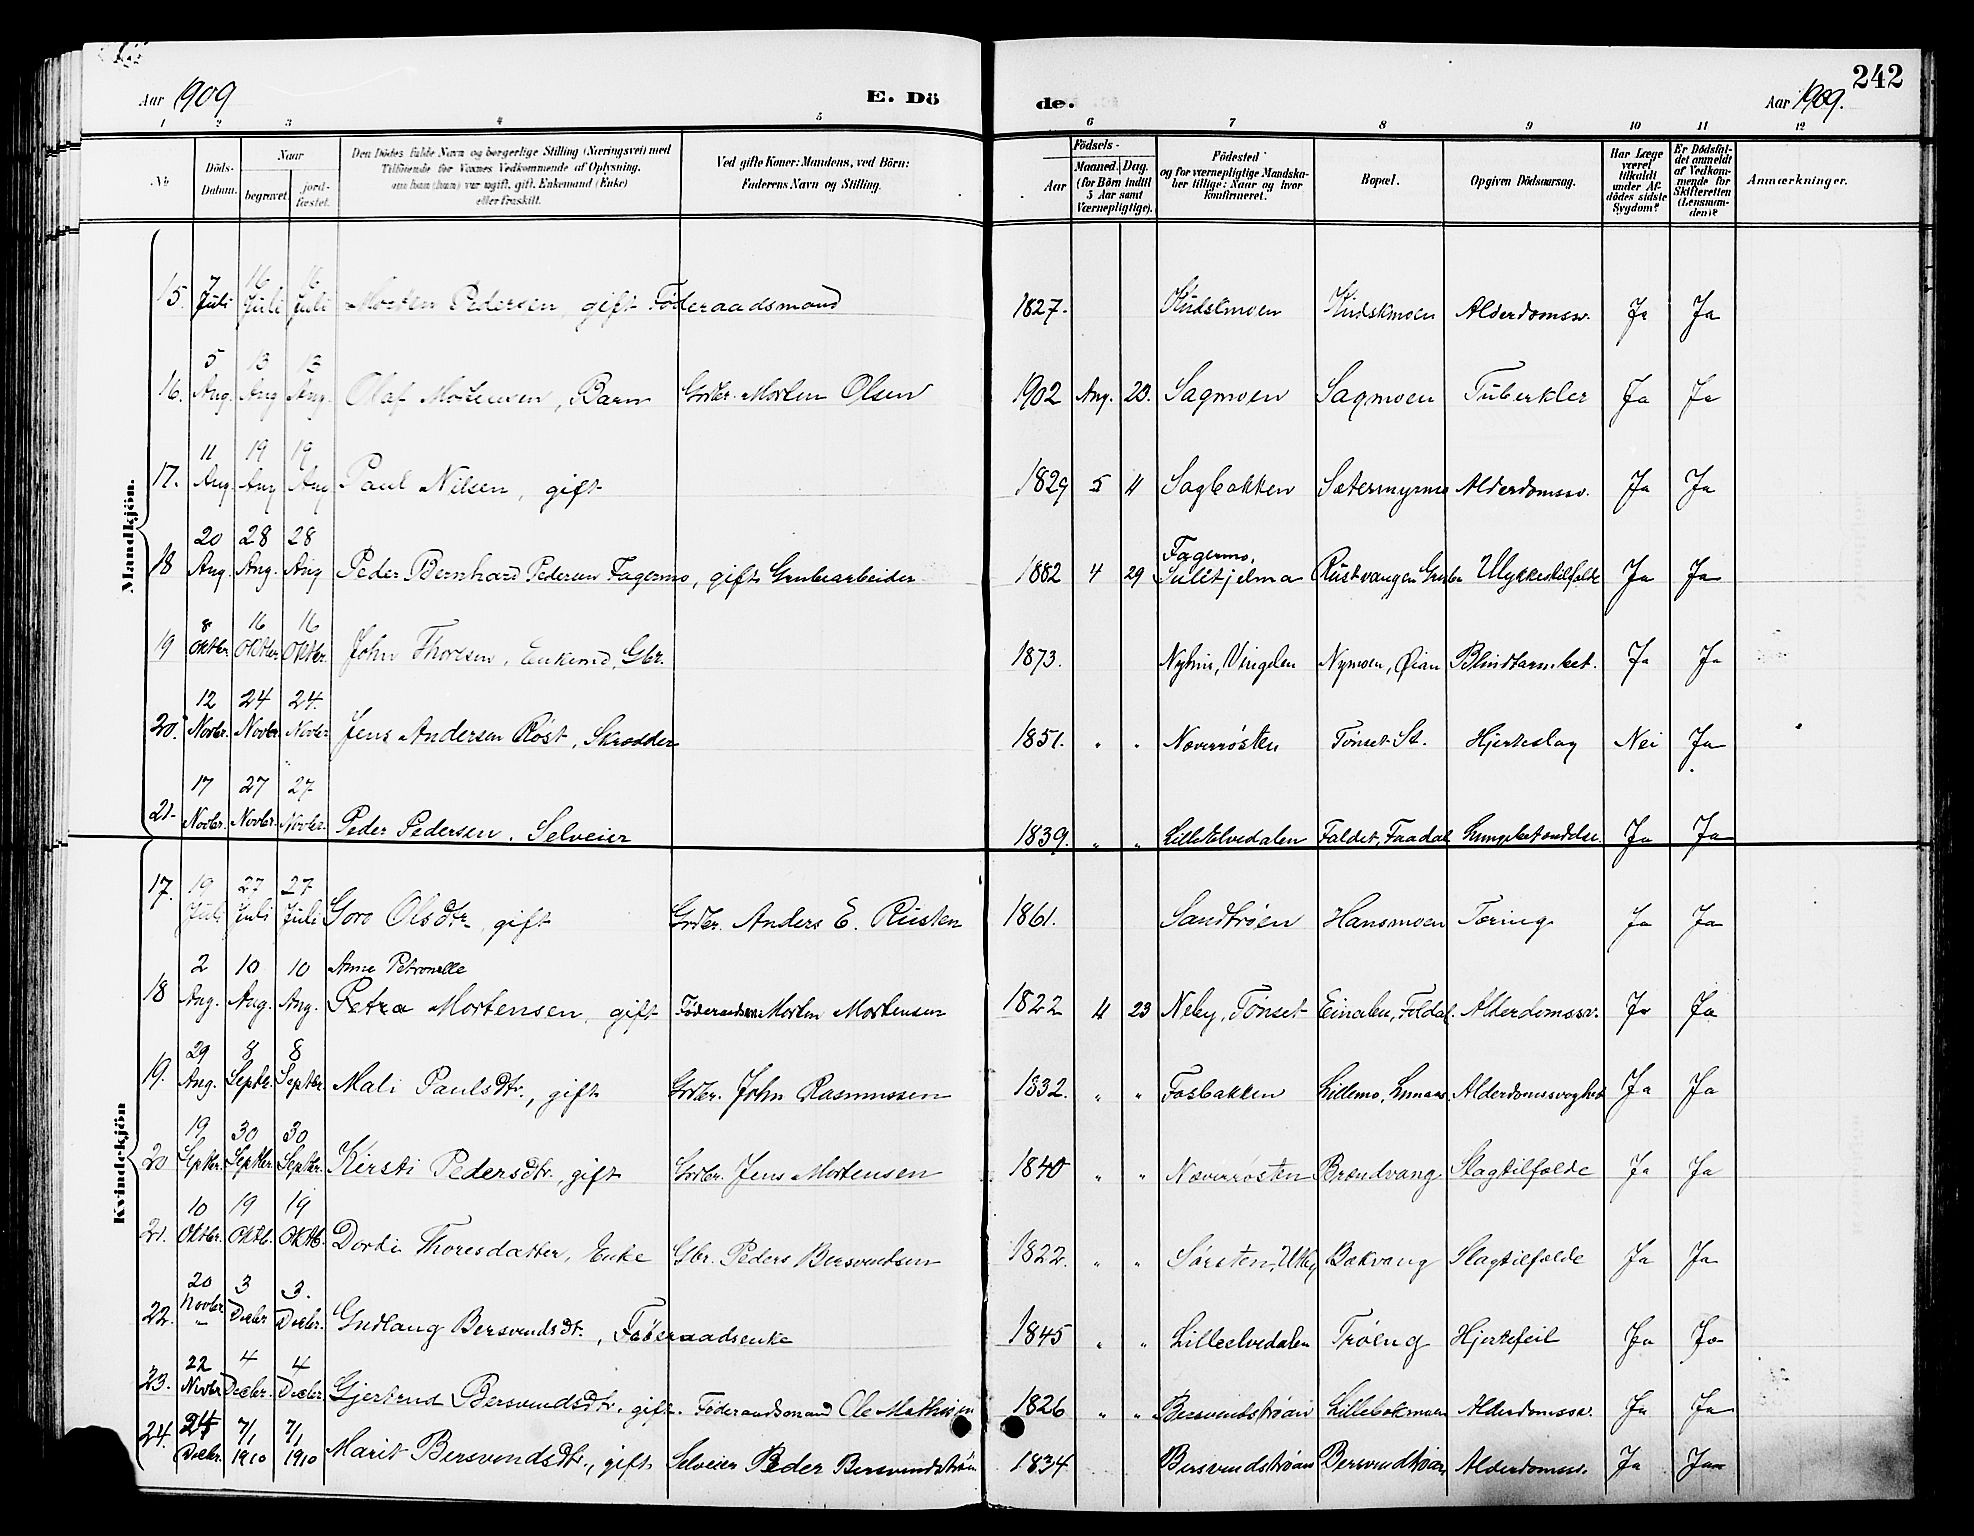 242
Aar 1909
E. Dö
de.
Aar 1909.
1 2 3 4 5 6 7 8 9 10 11 12
No
Döds-Datum.
Naar
begravet.
jordfæstet.
Den Dödes fulde Navn og borgerlige Stilling (Næringsvei) med Tilföiende for Voxnes Vedkommende af Oplysning, om han (hun) var ugift, gift, Enkemand (Enke) eller fraskilt.
Ved gifte Koner: Mandens, ved Börn: Faderens Navn og Stilling.
Födsels-
Aar
Maaned. Dag.
(for Börn indtil 5 Aar samt Værnepligtige).
Födested og for værnepligtige Mandskaber tillige: Naar og hvor konfirmeret.
Bopæl.
Opgiven Dödsaarsag.
Har Læge været tilkaldt under Afdödes sidste Sygdom?
Er Dödsfaldet anmeldt af Vedkommende for Skifteretten (Lensmanden)?
Anmærkninger.
Mandkjön.
15. 7 Juli 16 Juli 16 Juli Morten Pedersen, gift Föderaadsmand 1827. Kudskmoen Kudskmoen Alderdomssv. Ja Ja
16. 5 Aug. 13 Aug 13 Aug. Olaf Mortensen, Barn Grdbr. Morten Olsen 1902 Aug. 23. Sagmoen Sagmoen Tuberkler Ja Ja
17. 11 Aug. 19 Aug 19 Aug Paul Nilsen, gift 1829 5 11 Sagbakken Sætermyrmo Alderdomssv. Ja Ja
18 20 Aug. 28 Aug. 28 Aug Peder Bernhard Pedersen Fagermo, gift Grubearbeider 1882 4 29 Fagermo, Sulitjelma Rustvangen Grube Ulykkestilfælde Ja Ja
19 8 Oktbr. 16 Oktbr. 16 Oktbr. John Thoresen, Enkemd, Gbr. 1873. Vingelen Nymoen, Øian Ja Ja
20. 12 Novbr. 24 Novbr 24. Novbr Jens Andersen Röst, Skrædder 1851. " " Næverrösten Tönset St. Hjerteslag Nei Ja
21. 17 Novbr. 27 Novbr. 27 Novbr. Peder Pedersen. Selveier 1839. " " Lilleelvedalen Faldet, Faadal Lungebetændelse. Ja Ja
Kvindekjön
17. 19 Juli 27 Juli 27 Juli Goro Olsdtr, gift Grdbr. Anders E. Rusten 1861. Sandtröen Hansmoen Tæring Ja Ja
18 2 Aug. 10 Aug. 10 Aug. Anne Petronelle
Petra Mortensen, gift Föderaadsm Morten Mortensen 1822 4 23 Neby, Tönset Einalen, Foldal. Alderdomssv. Ja Ja
19. 29 Aug. 8 Septbr. 8 Septbr. Mali Paulsdtr., gift Grdbr. John Rasmussen 1832. " " Fosbakken Lillemo, Alderdomssvaghed Ja Ja
20 19 Septbr. 30 Septbr. 30 Septbr. Kirsti Pedersdtr., gift Grdbr. Jens Mortensen 1840 " " Næverrösten Brændvang Slagtilfælde Ja Ja
21. 10 Oktbr. 19 Oktb. 19 Oktb. Dordi Thoresdatter, Enke Gbr. Peders Bersvendsen 1822. " " Bakvang Slagtilfælde Ja Ja
22. 20 Novbr 3 Decbr 3. Decbr. Gudlaug Bersvendsdtr., Föderaadsenke 1845 " " Lilleelvedalen Tröeng Hjertefeil Ja Ja
23. 22 Novbr 4 Decbr. 4 Decbr. Gjertrud Bersvendsdtr., gift. Föderaadsmand Ole Mathisen 1826 " " Bersvendströen Lillebakmoen Alderdomssv. Ja Ja
24. 24 Decbr. 7/1 1910 7/1 1910 Marit Bersvendsdtr., gift Selveier Peder Bersvendströen 1834 Bersvendströen Bersvendtröen Alderdomssv. Ja Ja